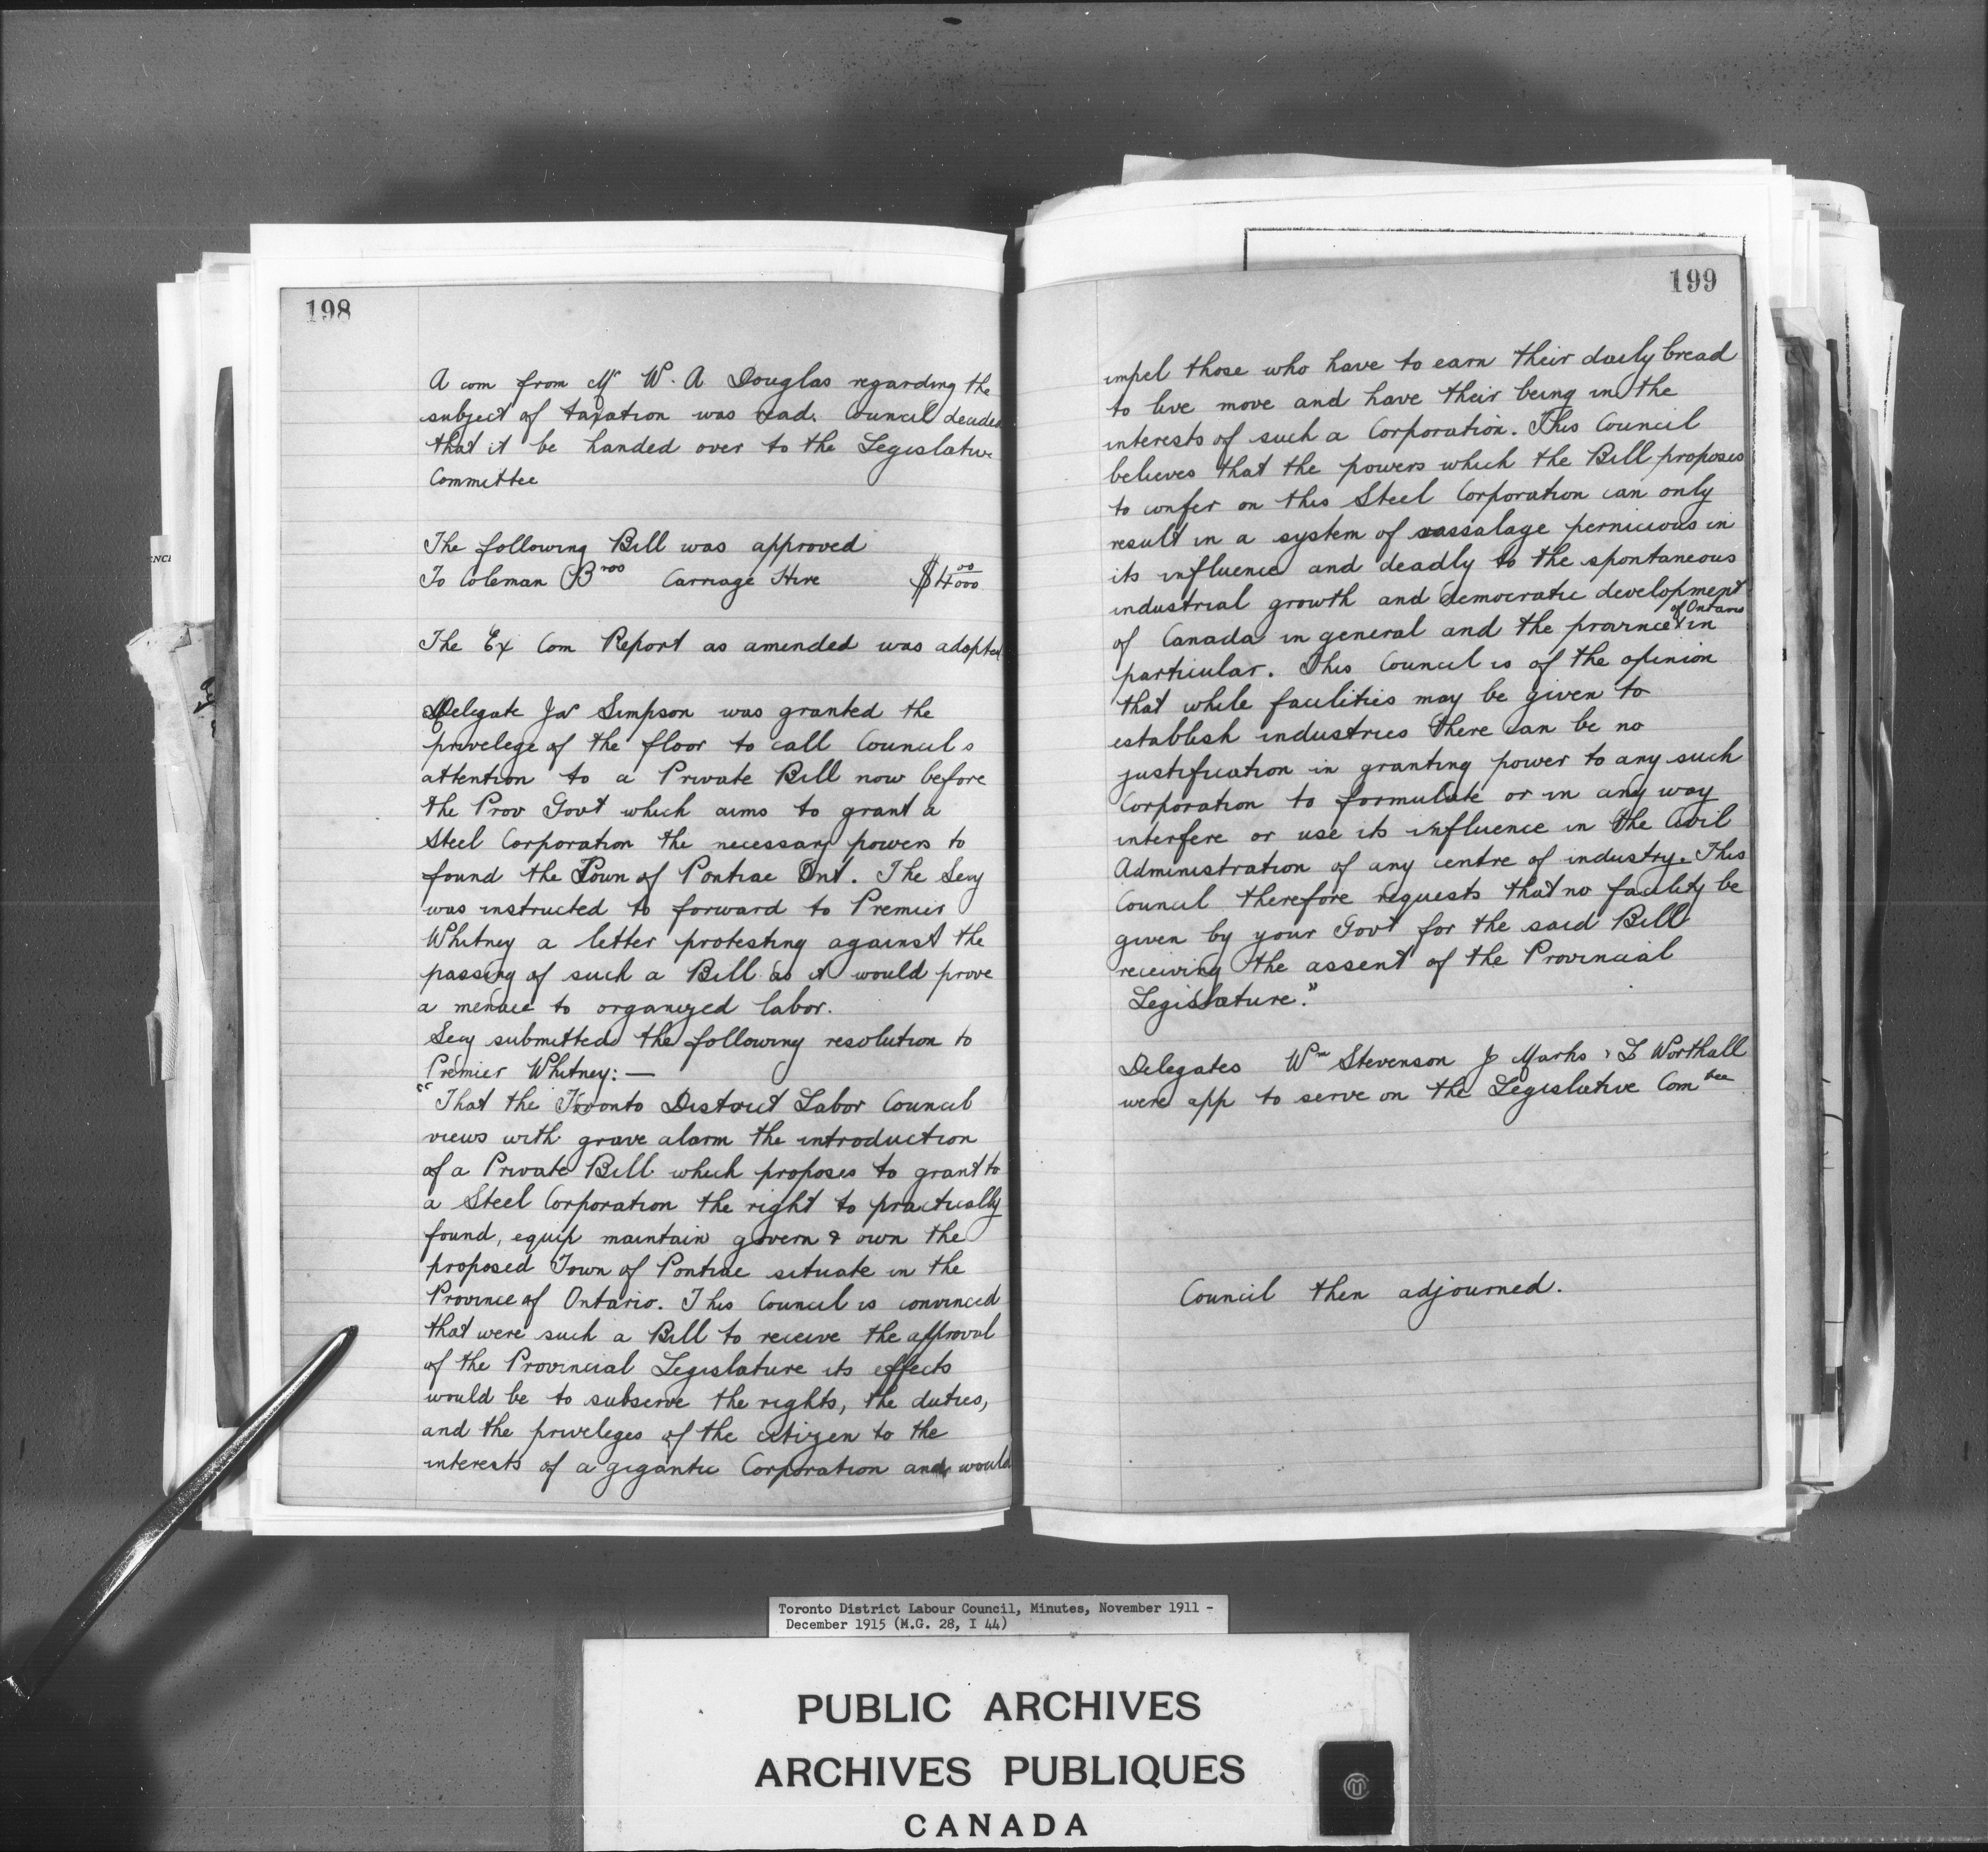 198
A com from Mr W. A Douglas regarding the
subject of taxation was read. Council decided
that it be handed over to the Legislative
Committee
The following Bill was approved
To Coleman Bros Carriage Hire $4 00/000
The Ex Com Report as amended was adopted
Delegate Jas Simpson was granted the
privelege of the floor to call Councils
attention to a Private Bill now before
the Prov Govt which aims to grant a
Steel Corporation the necessary powers to
found the Town of Pontiac Ont. The Secy
was instructed to forward to Premier
Whitney a letter protesting against the
passing of such a Bill as it would prove
a menace to organized labor.
Secy submitted the following resolution to
Premier Whitney: —
"That the Toronto District Labor Council
views with grave alarm the introduction
of a Private Bill which proposes to grant to
a Steel Corporation the right to practically
found, equip maintain govern & own the
proposed Town of Pontiac situate in the
Province of Ontario. This Council is convinced
that were such a Bill to receive the approval
of the Provincial Legislature its effects
would be to subserve the rights, the duties,
and the priveleges of the citizen to the
interests of a gigantic Corporation and would
199
impel those who have to earn their daily bread
to live move and have their being in the
interests of such a Corporation. This Council
believes that the powers which the Bill proposes
to confer on this Steel Corporation can only
result in a system of vassalage pernicious in
its influence and deadly to the spontaneous
industrial growth and democratic development
of Canada in general and the province of Ontario in
particular. This Council is of the opinion
that while facilities may be given to
establish industries there can be no
justification in granting power to any such
Corporation to formulate or in any way
interfere or use its influence in the Civil
Administration of any centre of industry. This
Council therefore requests that no facility be
given by your Govt for the said Bill
receiving the assent of the Provincial
Legislature."
Delegates Wm Stevenson J Marks & T Worthall
were app to serve on the Legislative Comtee
Council then adjourned.
Toronto District Labour Council, Minutes, November 1911 -
December 1915 (M.G. 28, I 44)
PUBLIC ARCHIVES
ARCHIVES PUBLIQUES
CANADA